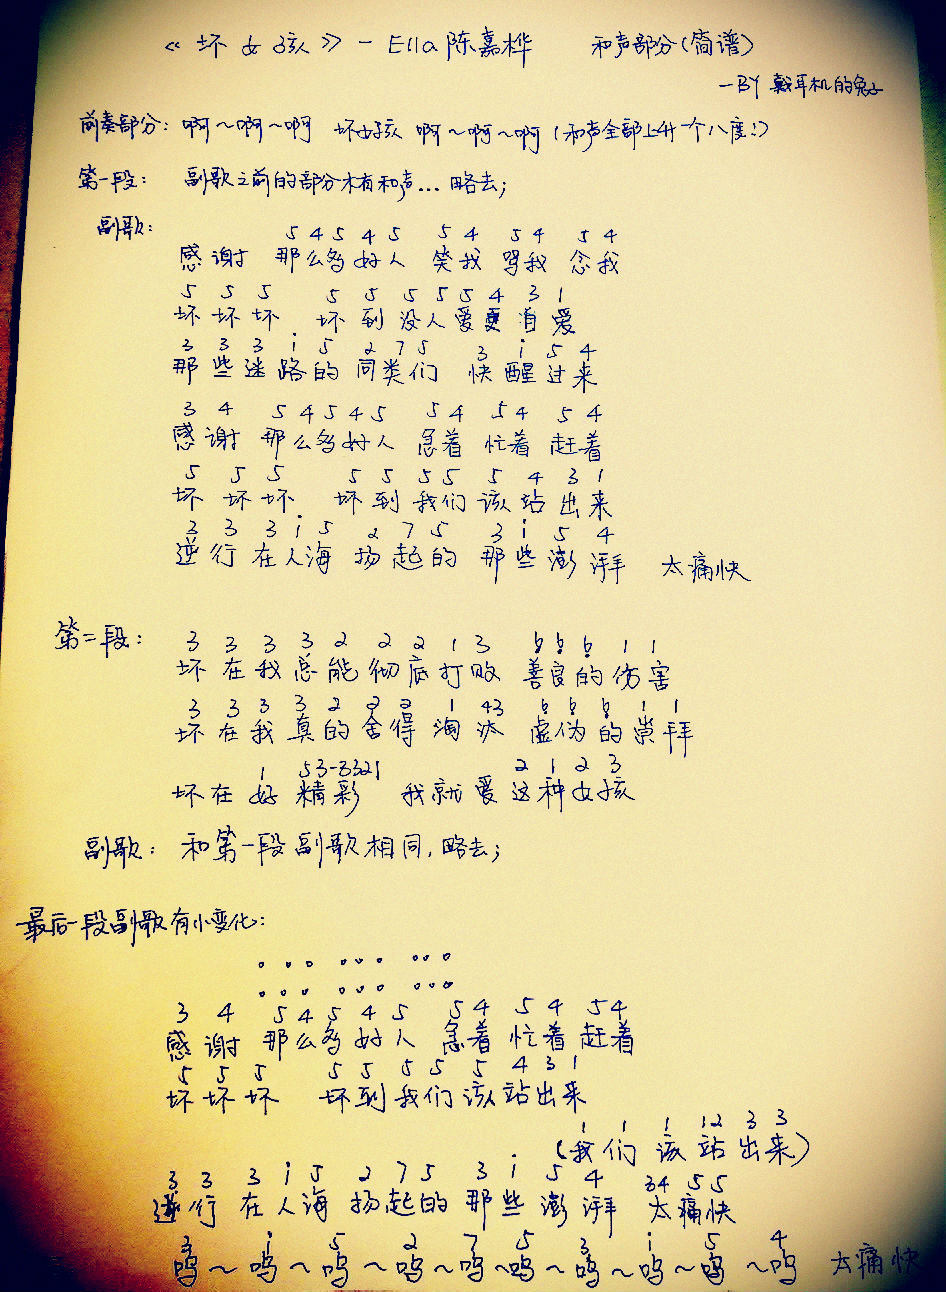 《坏女孩》-Ella陈嘉桦 和声部分(简谱)
-BY 戴耳机的兔子
前奏部分: 啊~啊~啊 坏女孩 啊~啊~啊(和声全部上升一个八度!)
第一段: 副歌之前的部分木有和声...略去;
副歌:
5 4 5 4 5 5 4 5 4 5 4
感谢 那么多好人 笑我 骂我 念我
5 5 5 5 5 5 5 5 4 3 1
坏坏坏 坏到没人爱更自爱
3 3 3 i 5 2 7 5 3 i 5 4
那些迷路的同类们 快醒过来
3 4 5 4 5 4 5 5 4 5 4 5 4
感谢 那么多好人 急着 忙着 赶着
5 5 5 5 5 5 5 5 4 3 1
坏坏坏 坏到我们该站出来
3 3 3 i 5 2 7 5 3 i 5 4
逆行在人海 扬起的 那些澎湃 太痛快
第二段: 3 3 3 3 2 2 2 1 3 6̣ 6̣ 6̣ 1 1
坏在我总能彻底打败 善良的伤害
3 3 3 3 2 2 2 1 43 6̣ 6̣ 6̣ 1 1
坏在我真的舍得淘汰 虚伪的崇拜
1 53-3321 2 1 2 3
坏在好精彩 我就爱这种女孩
副歌: 和第一段副歌相同,略去;
最后一段副歌有小变化:
3 4 5 4 5 4 5 5 4 5 4 5 4
感谢 那么多好人 急着 忙着 赶着
5 5 5 5 5 5 5 5 4 3 1
坏坏坏 坏到我们该站出来
1 1 1 12 3 3
(我们该站出来)
3 3 3 i 5 2 7 5 3 i 5 4 34 5 5
逆行在人海 扬起的那些澎湃 太痛快
3 i 5 2 7 5 3 i 5 4
呜~呜~呜~呜~呜~呜~呜~呜~呜~呜 太痛快